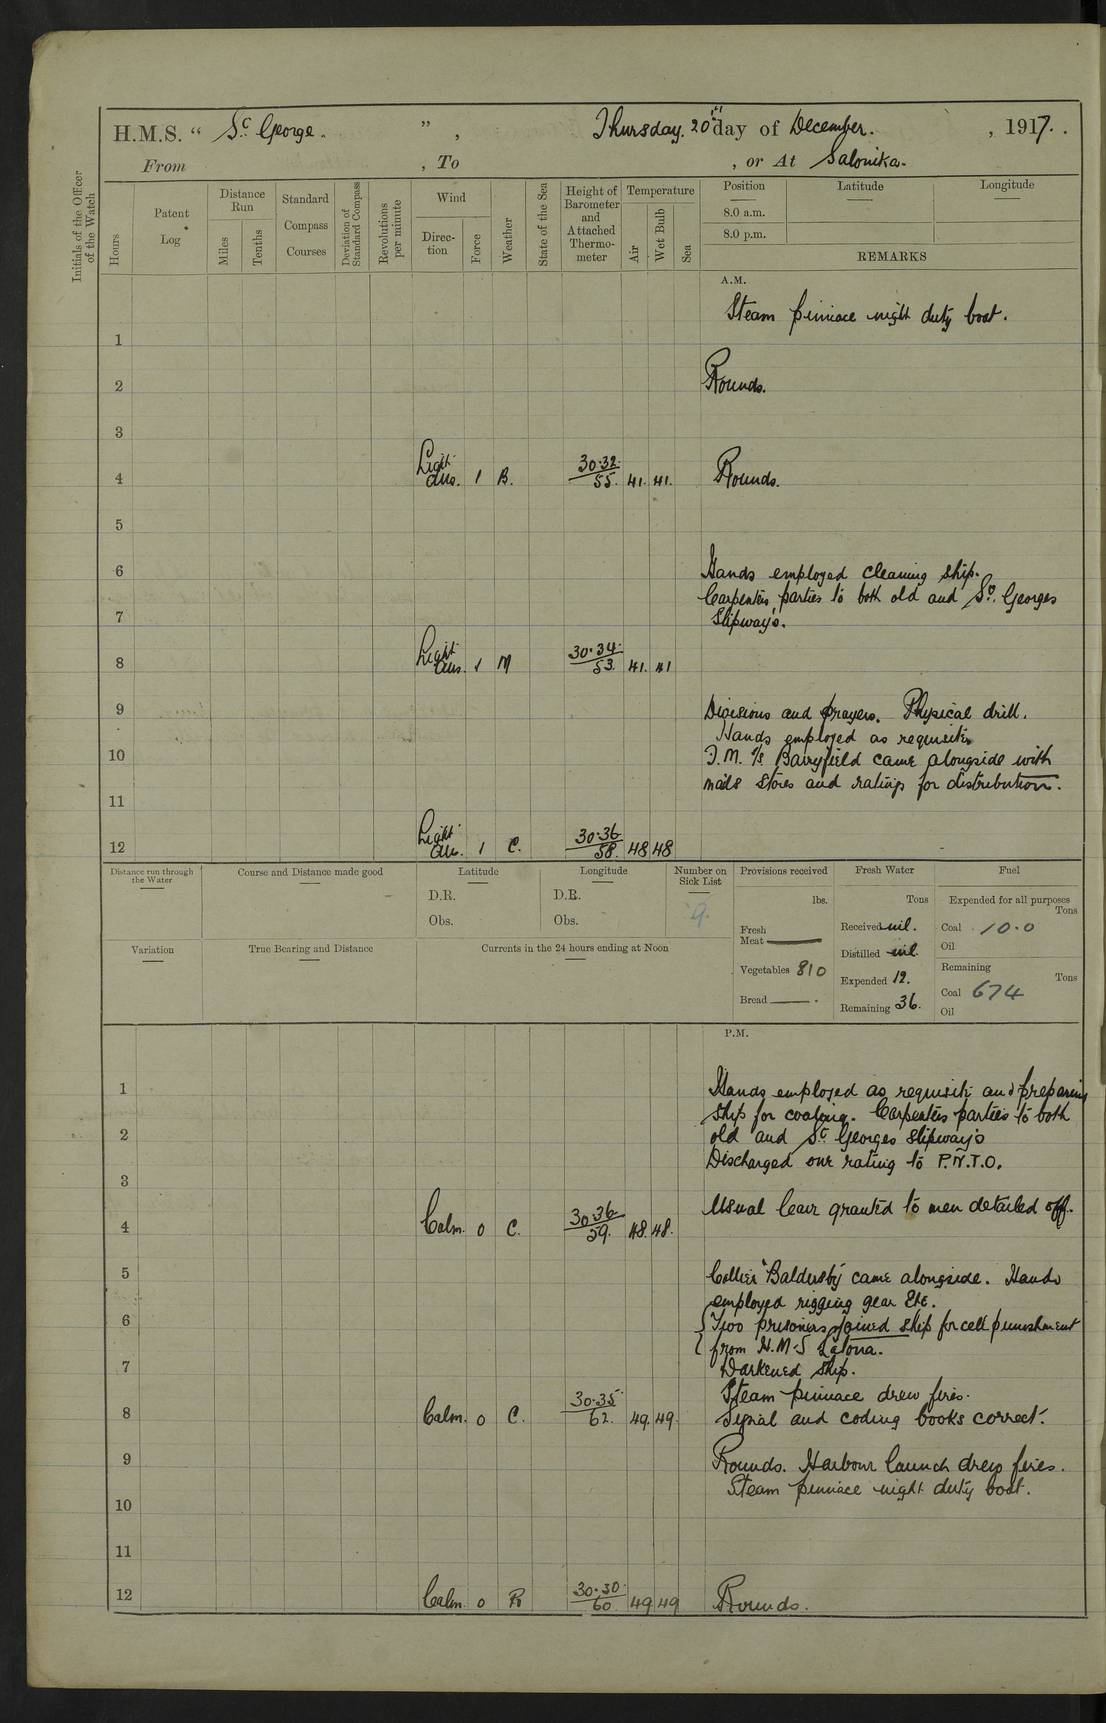 H.M.S. “ St George. ” , Thursday. 20th day of December. , 1917. .
From , To , or At Salonika.
Initials of the Officer of the Watch
Hours
Patent Log
Distance Run
Miles
Tenths
Standard Compass Courses
Deviation of Standard Compass
Revolutions per minute
Wind
Direc-tion
Force
Weather
State of the Sea
Height of Barometer and Attached Thermo-meter
Temperature
Air
Wet Bulb
Sea
Position Latitude Longitude
8.0 a.m.
8.0 p.m.
REMARKS
A.M.
Steam pinnace night duty boat.
1
2 Rounds.
3
4 Light airs. 1 B. 30.32 55. 41. 41. Rounds.
5
6 Hands employed cleaning ship.
Carpenters parties to both old and St. Georges
7 Slipways.
8 Light airs. 1 M 30.34 53. 41. 41
9 Divisions and prayers. Physical drill.
Hands employed as requisite
10 F.M. S/s Barryfield came alongside with
mails stores and ratings for distribution.
11
12 Light airs. 1 C. 30.36 58. 48 48
Distance run through the Water
Course and Distance made good
Latitude
D.R.
Obs.
Longitude
D.R.
Obs.
Number on Sick List
9.
Provisions received
lbs.
Fresh Meat
Vegetables 810
Bread
Fresh Water
Tons
Received nil.
Distilled nil.
Expended 12.
Remaining 36.
Fuel
Expended for all purposes
Tons
Coal 10.0
Oil
Remaining
Tons
Coal 674
Oil
Variation
True Bearing and Distance
Currents in the 24 hours ending at Noon
P.M.
1 Hands employed as requisite and preparing
ship for coaling. Carpenters parties to both
2 old and St Georges slipways
Discharged one rating to P.N.T.O.
3
Usual leave granted to men detailed off.
4 Calm. 0 C. 30.36 59. 48. 48.
5 Collier "Baldersby" came alongside. Hands
employed rigging gear Etc.
6 Two prisoners joined ship for cell punishment
from H.M.S Latona.
7 Darkened ship.
Steam pinnace drew fires.
8 Calm. 0 C. 30.35 62. 49. 49. Signal and coding books correct.
9 Rounds. Harbour launch drew fires.
Steam pinnace night duty boat.
10
11
12 Calm. 0 R 30.30 60 49 49 Rounds.